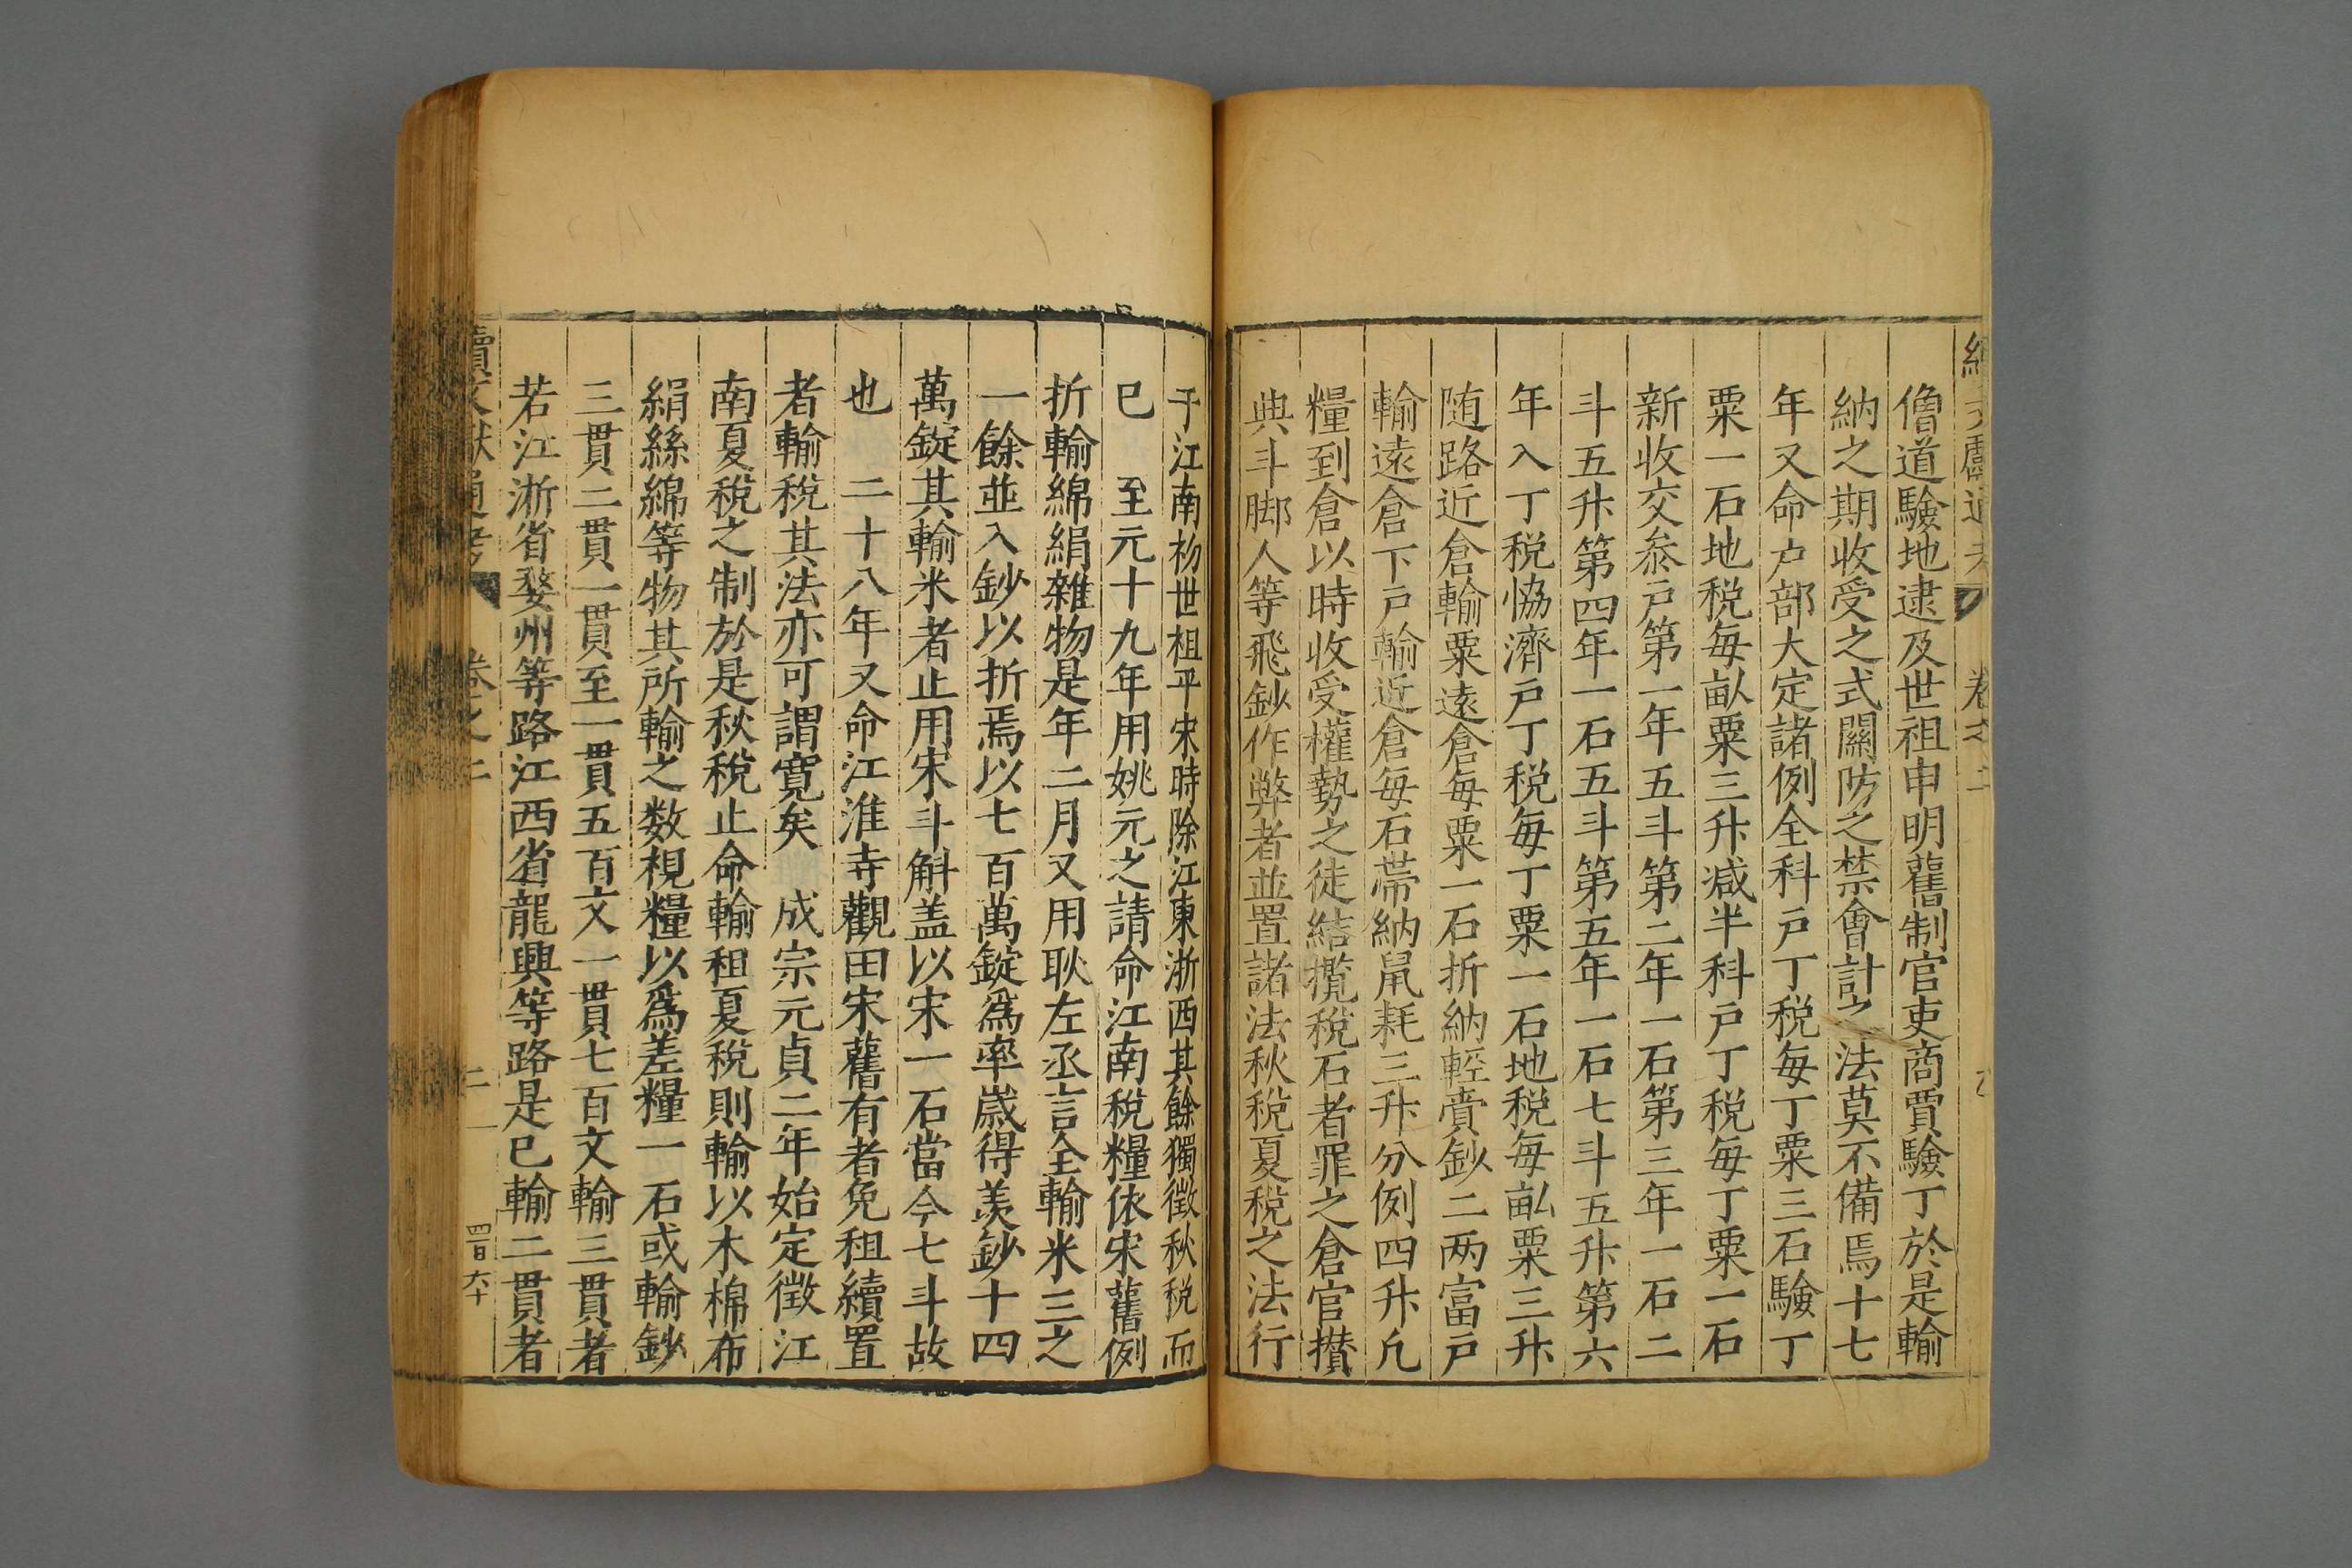 僧道驗地逮及世祖申明舊制官吏商賈驗丁於是輸
納之期收受之式關防之禁會計之法莫不備焉十七
年又命户部大定諸例全科戸丁税每丁粟三石驗丁
粟一石地税每畝粟三升减半科戸丁税每丁粟一石
新收交叅戸第一年五斗第二年一石第三年一石二
斗五升第四年一石五斗第五年一石七斗五升第六
年入丁税恊濟戸丁税每丁粟一石地税每畝粟三升
随路近倉輸粟遠倉每粟一石折納輕賫鈔二两富戸
輸遠倉下戸輸近倉每石帶納鼠耗三升分例四升凢
糧到倉以時收受權勢之徒結攬税石者罪之倉官攅
典斗脚人等飛鈔作弊者並置諸法秋税夏税之法行
于江南初世祖平宋時除江東浙西其餘獨徵秋税而
已　至元十九年用姚元之請命江南税糧依宋舊例
折輸綿絹雜物是年二月又用耿左丞言全輸米三之
一餘並入鈔以折焉以七百萬錠爲率歲得羡鈔十四
萬錠其輸米者止用宋斗斛盖以宋一石當今七斗故
也　二十八年又命江淮寺觀田宋舊有者免租續置
者輸税其法亦可謂寛矣　成宗元貞二年始定徵江
南夏税之制於是秋税止命輸租夏税則輸以木棉布
絹絲綿等物其所輸之数視糧以爲差糧一石或輸鈔
三貫二貫一貫至一貫五百文一貫七百文輸三貫者
若江浙省婺州等路江西省龍興等路是已輸二貫者
續文獻通考　卷之二　二　四百六十